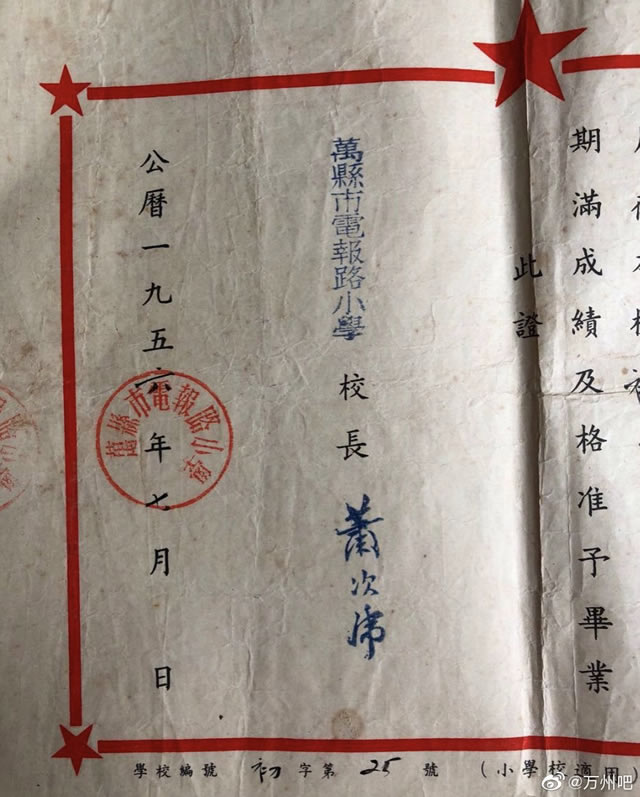 期滿成績及格准予畢業
此證
萬縣市電報路小學 校長 蕭次
公曆一九五六年七月 日
萬縣市電報路小學
學校編號 初字第 25 號 (小學校適用)
@万州吧